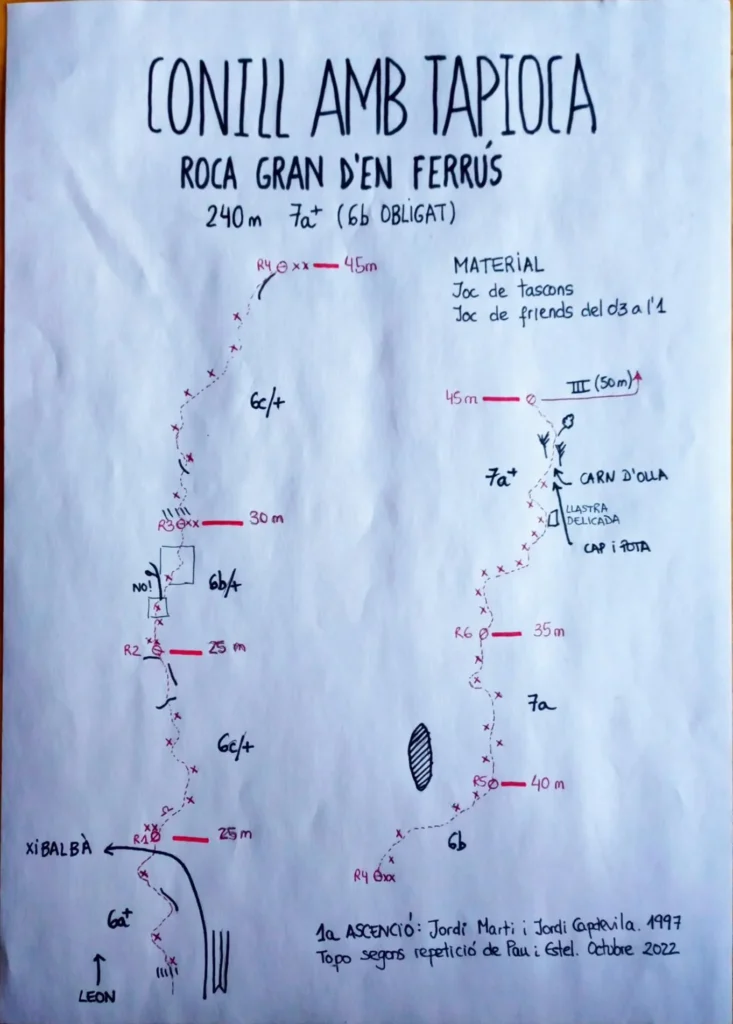 CONILL AMB TAPIOCA
ROCA GRAN D'EN FERRÚS
240m 7a+ (6b OBLIGAT)
R4 xx 45m
MATERIAL
Joc de tascons
Joc de friends del 03 a l'1
6c/+
45m
III (50m)
7a+
CARN D'OLLA
LLASTRA
DELICADA
CAP i POTA
R3 xx 30 m
NO!
6b/+
R2 25 m
R6 35m
6c/+
7a
R5 40m
R1 25m
XiBALBÀ
6b
R4 xx
6a+
LEON
1a ASCENCIÓ: Jordi Marti i Jordi Capdevila. 1997
Topo segons repetició de Pau i Estel. Octubre 2022